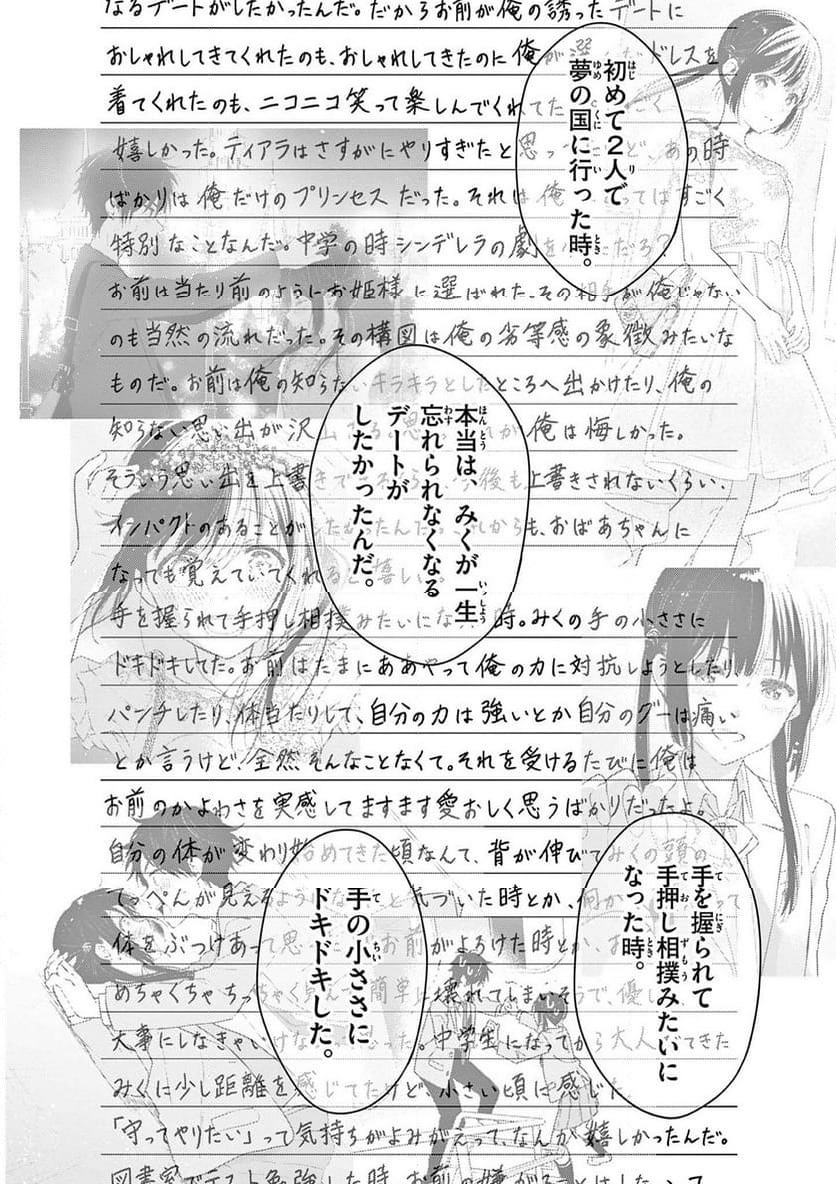 なるデートがしたかったんだ。だからお前が俺の誘ったデートに
おしゃれしてきてくれたのも、おしゃれしてきたのに俺が選 ドレスを
着てくれたのも、ニコニコ笑って楽しんでくれてた
嬉しかった。ティアラはさすがにやりすぎたと思っ ど、あの時
ばかりは俺だけのプリンセスだった。それは俺 ってはすごく
特別なことなんだ。中学の時シンデレラの劇を だろ?
お前は当たり前のようにお姫様に選ばれた。その相手が俺じゃない
のも当然の流れだった。その構図は俺の劣等感の象徴みたいな
ものだ。お前は俺の知らないキラキラとしたところへ出かけたり、俺の
知らない思い出が沢山 俺は悔しかった。
そういう思い出を上書きで 今後も上書きされないくらい、
インパクトのあることがしたかったんだ これからも、おばあちゃんに
なっても覚えていてくれると嬉しい。
手を握られて手押し相撲みたいにな 時。みくの手の小ささに
ドキドキしてた。お前はたまにああやって俺の力に対抗しようとしたり、
パンチしたり、体当たりして、自分の力は強いとか自分のグーは痛い
とか言うけど、全然そんなことなくて。それを受けるたびに俺は
お前のかよわさを実感してますます愛おしく思うばかりだったよ。
自分の体が変わり始めてきた頃なんて、背が伸びてみくの頭の
てっぺんが見えるように と気づいた時とか、何か って
体をぶつけあって思 お前がよろけた時とか、お
めちゃくちゃちっちゃく見 簡単に壊れてしまいそうで、優し
大事にしなきゃいけな 思った。中学生になってから大人 てきた
みくに少し距離を感じてたけど、小さい頃に感じた
「守ってやりたい」って気持ちがよみがえって、なんか嬉しかったんだ。
図書室でテスト勉強した時、お前の嫌がることはした
初めて２人で
夢の国に行った時。
本当は、みくが一生
忘れられなくなる
デートが
したかったんだ。
手を握られて
手押し相撲みたいに
なった時。
手の小ささに
ドキドキした。